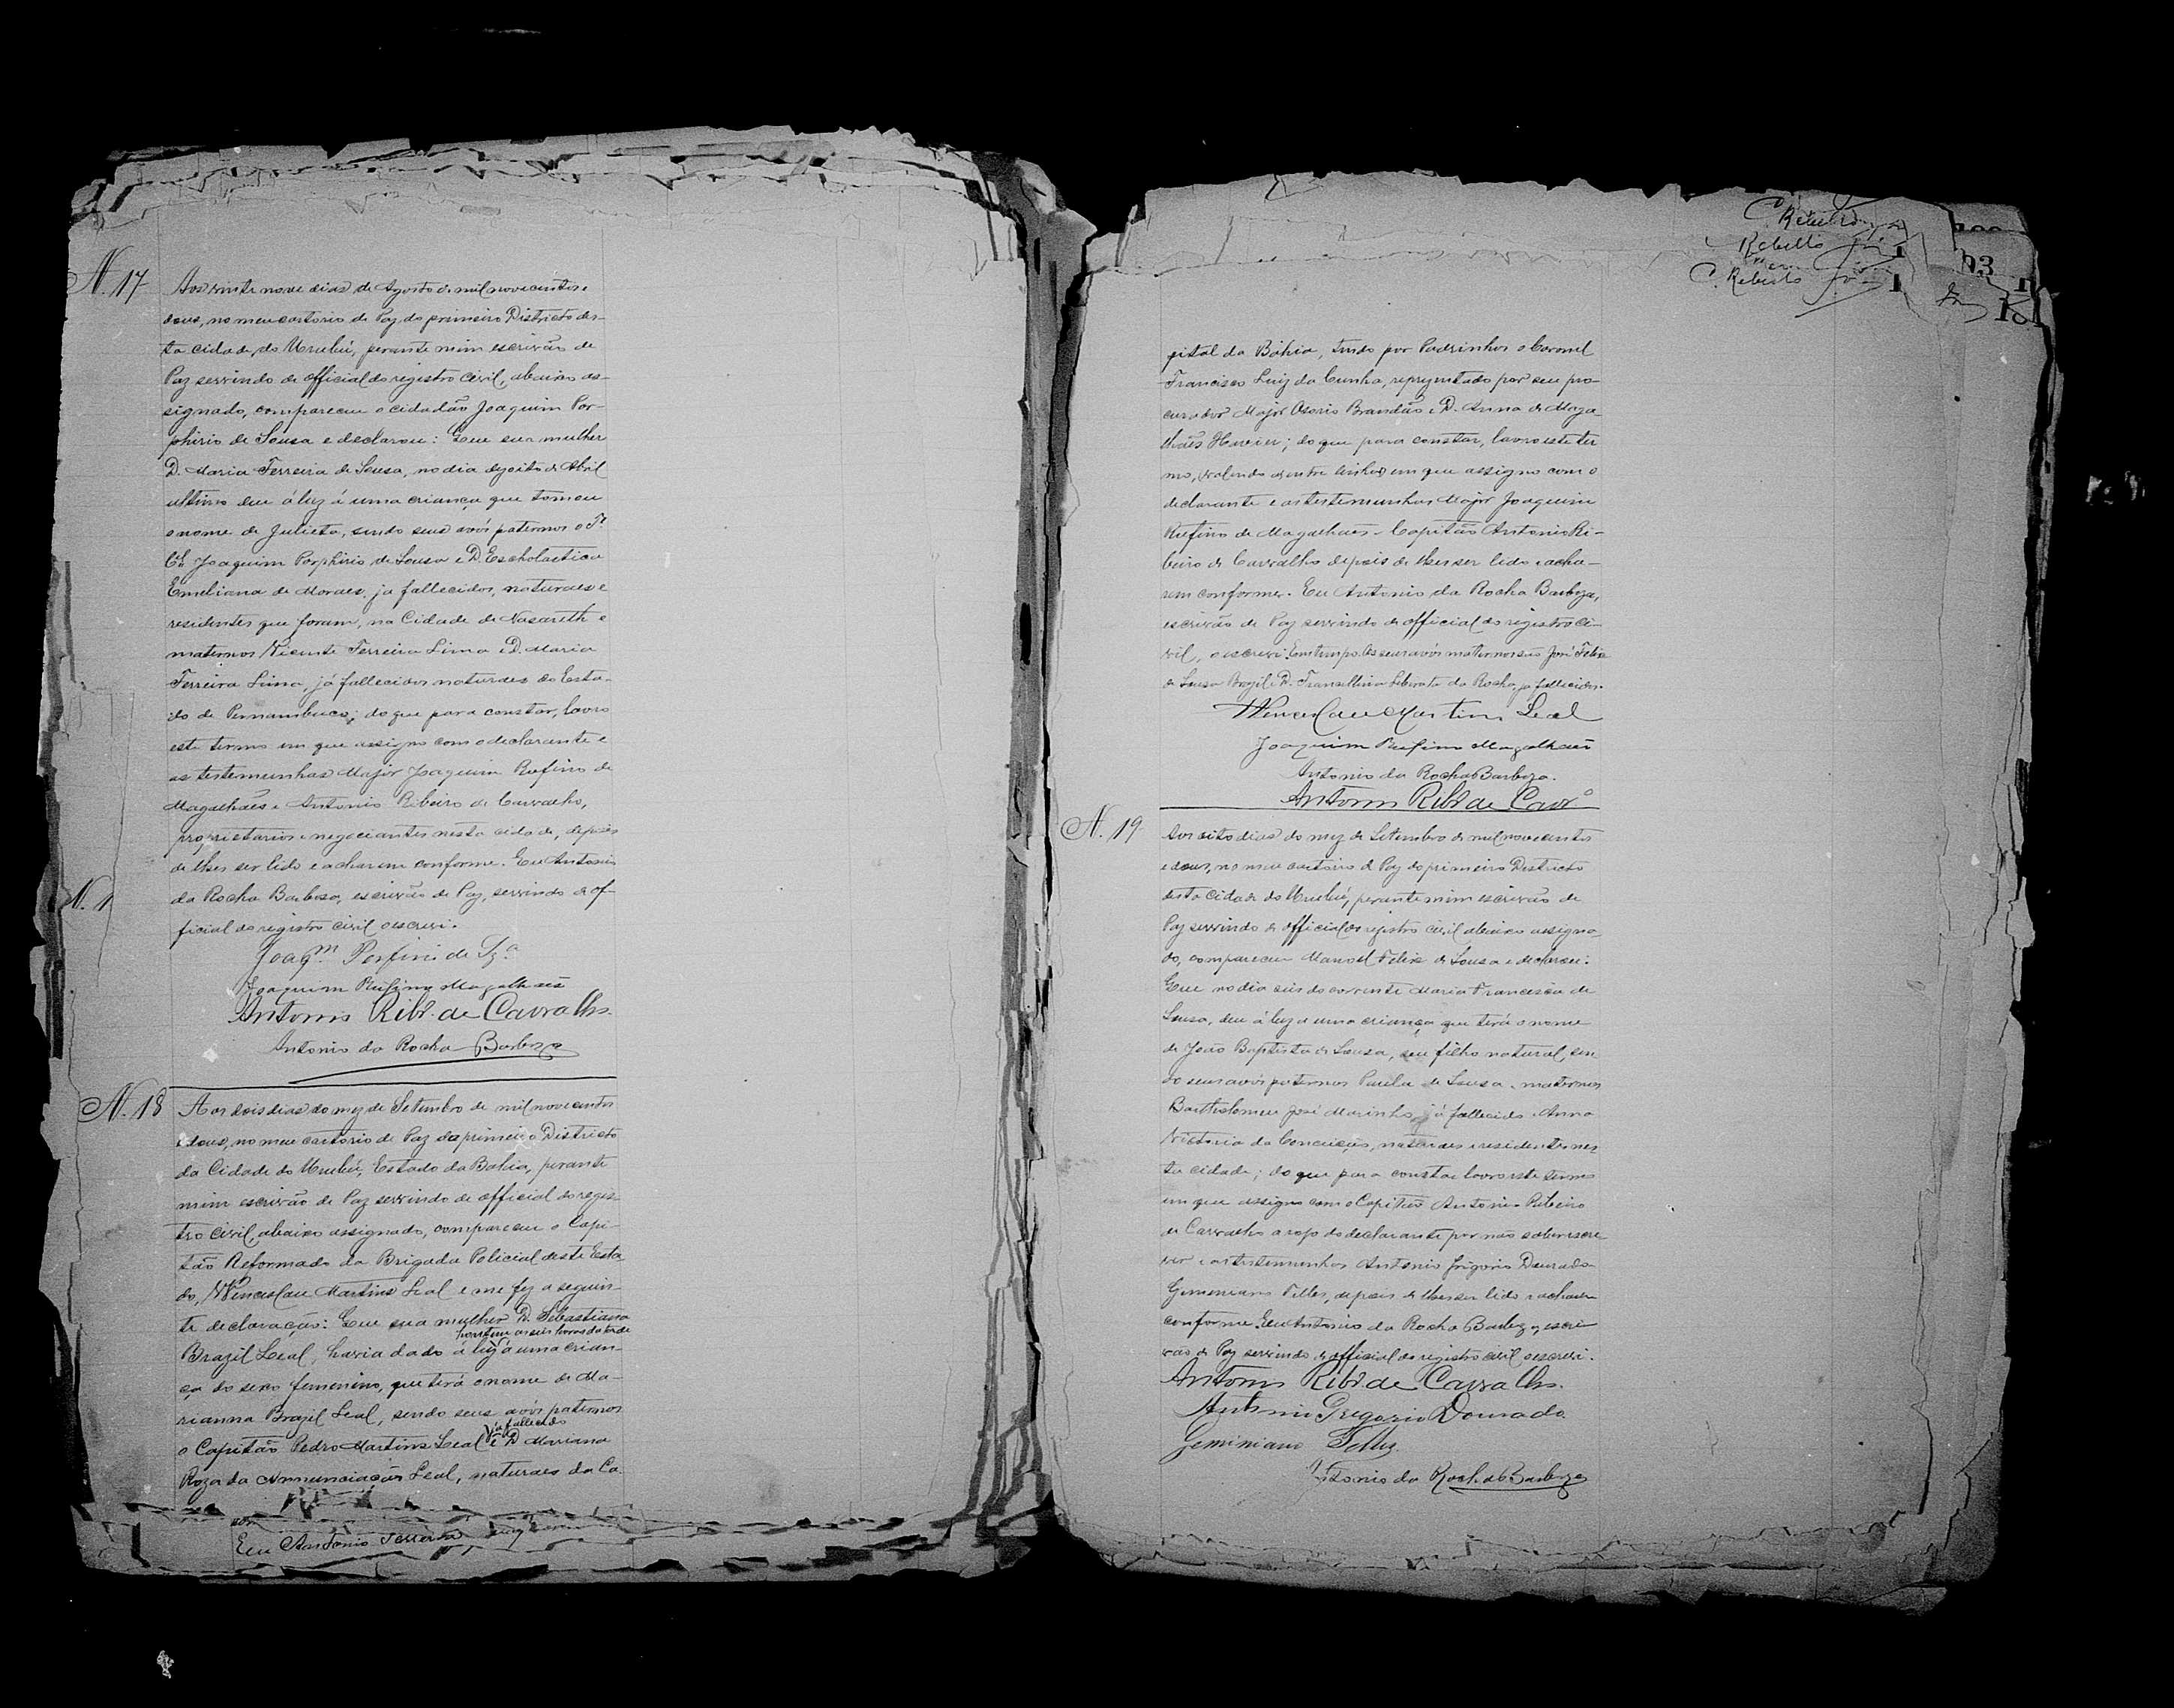 N. 17
Aos vinte nove dias de Agosto de mil novecentos e
dous, no meu cartorio de Paz do primeiro Districto des-
ta cidade, do Urubú, perante mim escrivão de
Paz servindo de official do registro civil, abaixo as-
signado, compareceu o cidadão Joaquim Por-
phirio de Sousa e declarou: Que sua mulher
D. Maria Ferreira de Sousa, no dia dezoito de Abril
ultimo deu á luz á uma criança que tomou
o nome de Julieta, sendo seus avós paternos o Te
Cel Joaquim Porphirio de Sousa e D. Escholastica
Emeliana de Moraes, ja fallecidos, naturaes e
residentes que foram, na Cidade de Nasareth e
maternos Vicente Ferreira Lima e D. Maria
Ferreira Lima, já fallecidos naturaes do Esta-
do de Pernambuco; do que para constar, lavro
este termo em que assigno com o declarante e
as testemunhas Major Joaquim Rufino de
Magalhães e Antonio Ribeiro de Carvalho,
proprietarios e negociantes nesta cidade, depois
de lhes ser lido e acharem conforme. Eu Antonio
da Rocha Barboza, escrivão de Paz, servindo de of-
ficial do registro civil o escrevi.
N. 1
Joaqm Porfirio de Sza
Joaquim Rufino Magalhães
Antonio Ribr. de Carvalho.
Antonio da Rocha Barboza
N. 18
Aos dois dias do mez de Setembro de mil novecentos
e dous, no meu cartorio de Paz do primeiro Districto
da Cidade do Urubú, Estado da Bahia, perante
mim escrivão de Paz servindo de official do regis-
tro civil, abaixo assignado, compareceu o Capi-
tão Reformado da Brigada Policial deste Esta-
do, Wenceslau Martins Leal e me fez a seguin-
te declaração: Que sua mulher D. Sebastiana
hontem as seis horas da tarde
Brazil Leal, havia dado á luz á uma crian-
ça do sexo femenino, que terá o nome de Ma-
rianna Brazil Leal, sendo seus avós paternos
já fallecido
o Capitão Pedro Martins Leal e D. Mariana
Roza da Annunciação Leal, naturaes da Ca-
Eu Antonio Ferreira
C. Rebello
Rebello
C. Rebello
93
181
pital da Bahia, tendo por Padrinhos o Coronel
Francisco Luiz da Cunha, reprezentado por seu pro-
curador Major Osorio Brandão e D. Anna de Maga-
lhães Xavier; do que para constar, lavro este ter
mo, valendo a entre linhas em que assigno com o
declarante e as testemunhas Major Joaquim
Rufino de Magalhães e Capitão Antonio Ri-
beiro de Carvalho depois de lhes ser lido e acha-
rem conforme. Eu Antonio da Rocha Barboza,
escrivão de Paz servindo de official do registro ci-
vil, o escrevi. Em tempo. Os seus avós maternos são José Felix
de Sousa Brazil e D. Transellina Liberata da Rocha, ja fallecidos.
Wenceslau Martins Leal
Joaquim Rufino Magalhães
Antonio da Rocha Barboza.
Antonio Ribr de Carvo
N. 19
Aos oito dias do mez de Setembro de mil novecentos
e dous, no meu cartorio de Paz do primeiro Districto
desta Cidade do Urubú, perante mim escrivão de
Paz servindo de official do registro civil abaixo assigna-
do, compareceu Manoel Felix de Sousa e declarou:
Que no dia seis do corrente Maria Francisca de
Sousa, deu á luz a uma criança que terá o nome
de João Baptista de Sousa, seu filho natural, sen
do seus avós paternos Paula de Sousa e maternos
Bartholomeu José Marinho já fallecido e Anna
Victoria da Conceição, naturaes e residentes nes
ta cidade; do que para constar lavro este termo
em que assigno com o Capitão Antonio Ribeiro
de Carvalho a rogo do declarante por não saber escre
ver e as testemunhas Antonio Grigorio Dourado
Gemeniano Telles, depois de lhes ser lido e acharem
conforme. Eu Antonio da Rocha Barboza, escri
vão de Paz servindo de official do registro civil o escrevi.
Antonio Ribr de Carvalho.
Antonio Gregorio Dourado
Geminiano Telles
Antonio da Rocha Barboza